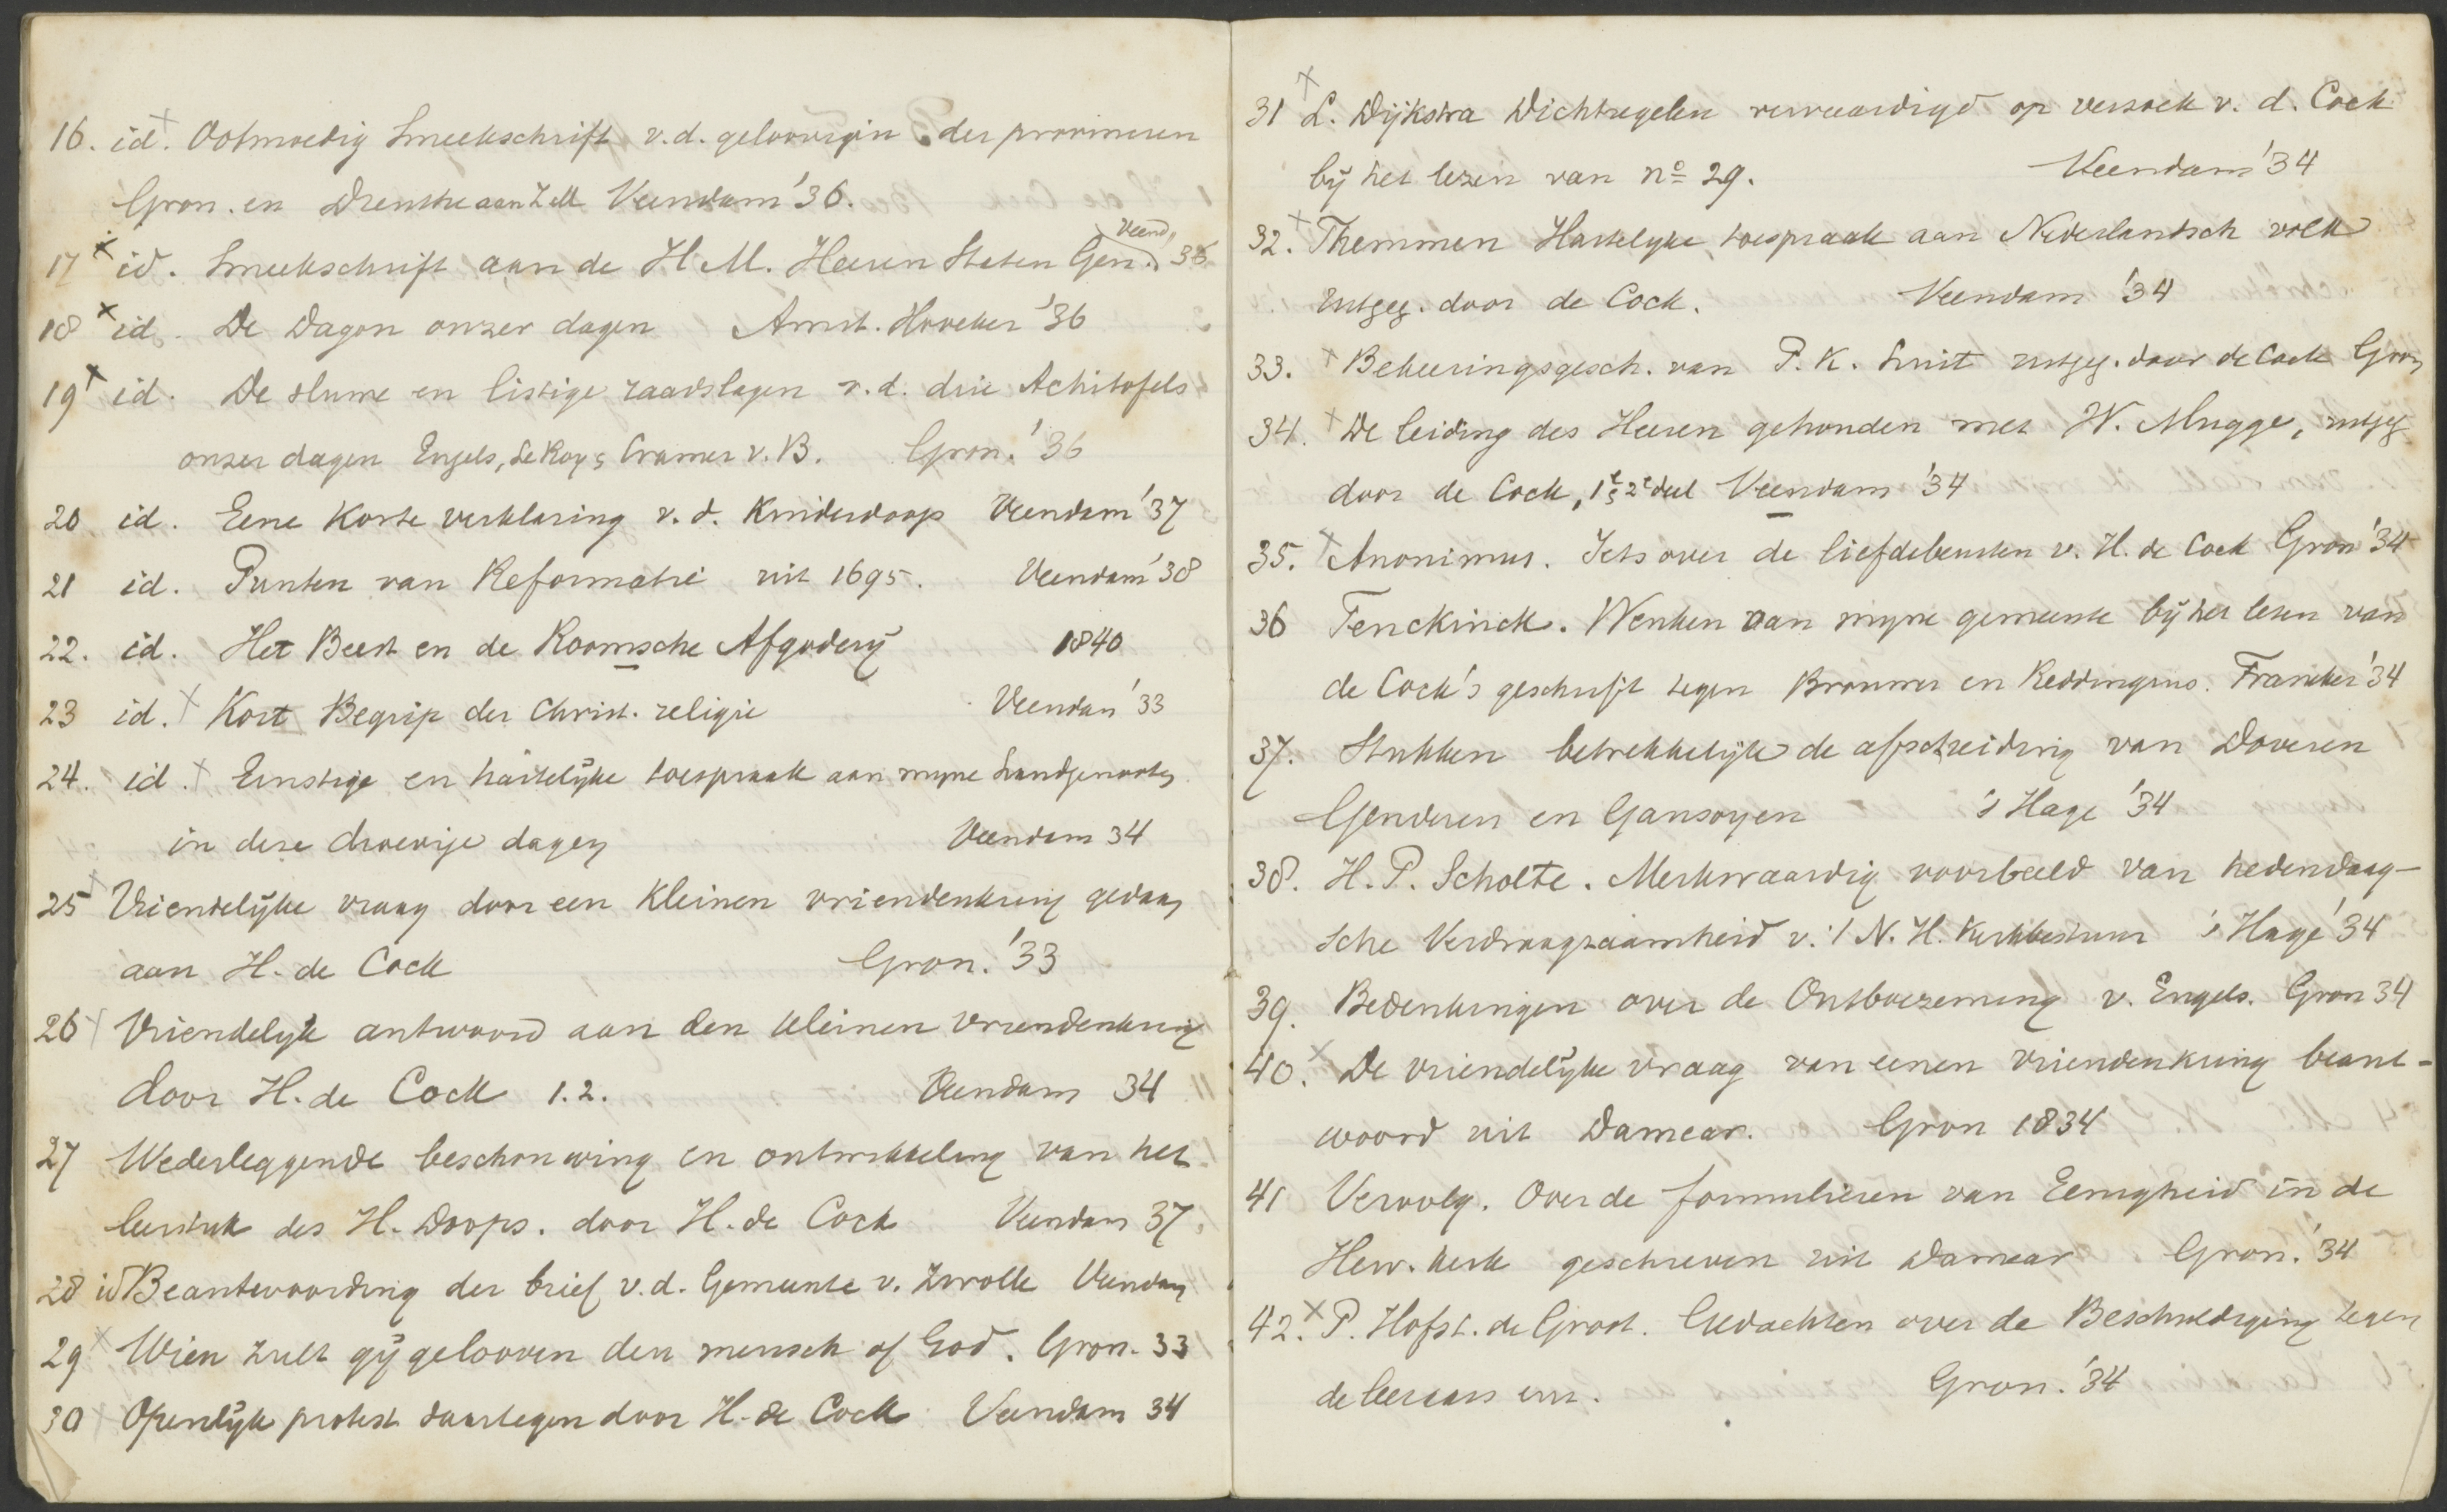 16. id. Ootmoedig Smeekschrift v.d. geloovigen der provincien
Gron. en Drenthe aan Z.M. Veendam '36.
Veend.
17 x id. Smeekschrift aan de H.M. Heeren Staten Gen. 35
18 x id. De Dagon onzer dagen Amst. Hoveker '36
19 x id. De slume en listige raadslagen v.d. drie Achitofels
onzer dagen Engels, LeRoy & Cramer v. B. Gron. '36
20 id. Eene Korte verklaring v.d. Kinderdoop Veendam '37
21 id. Punten van Reformatie uit 1695. Veendam '38
22. id. Het Beest en de Roomsche Afgodery 1840
23 id. x Kort Begrip der Christ. religie Veendam '33
24. id. x Ernstige en hartelyke toespraak aan myne Landgenooten
in deze droevige dagen Veendam 34
25 x Vriendelijke vraag door een Kleinen vriendenkring gedaan
aan H. de Cock Gron. '33
26 x Vriendelyk antwoord aan den kleinen vriendenkring
door H. de Cock 1.2. Veendam 34
27 Wederleggende beschouwing en ontwikkeling van het
leerstuk des H. Doops. door H. de Cock Veendam 37
28 id Beantwoording der brief v.d. Gemeente v. Zwolle Veendam
29 x Wien zult gij gelooven den mensch of God. Gron. 33
30 x Openlijk protest daartegen door H. de Cock Veendam 34
31 x L. Dijkstra Dichtregelen vervaardigd op verzoek v. d. Cock
bij het lezen van no 29. Veendam '34
32. x Themmen Hartelyke toespraak aan Nederlandsch volk
uitgeg. door de Cock. Veendam '34
33. x Bekeeringsgesch. van P. K. Smit uitgeg. door de Cock Gron
34. x De leiding des Heeren gehouden met W. Mugge, uitgeg
door de Cock, 1e & 2e deel Veendam '34
35. x Anonimus. Iets over de liefdebeurten v. H. de Cock Gron '34
36 Fenckinck. Wenken aan myne gemeente bij het lezen van
de Cock's geschrift tegen Brouwer en Reddingius. Franeker '34
37. Stukken betrekkelijk de afscheiding van Doveren
Genderen en Gansoyen 's Hage '34
38. H. P. Scholte. Merkwaardig voorbeeld van hedendaag-
sche Verdraagzaamheid v. 't N. H. Kerkbestuur 's Hage '34
39. Bedenkingen over de Ontboezeming v. Engels. Gron 34
40. x De vriendelijke vraag van eenen vriendenkring beant-
woord uit Damear. Gron 1834
41 Vervolg. Over de formulieren van Eenigheid in de
Herv. kerk geschreven uit Damear Gron. '34
42. x P. Hofst. de Groot. Gedachten over de Beschuldiging tegen
de leeraars enz. Gron. '34